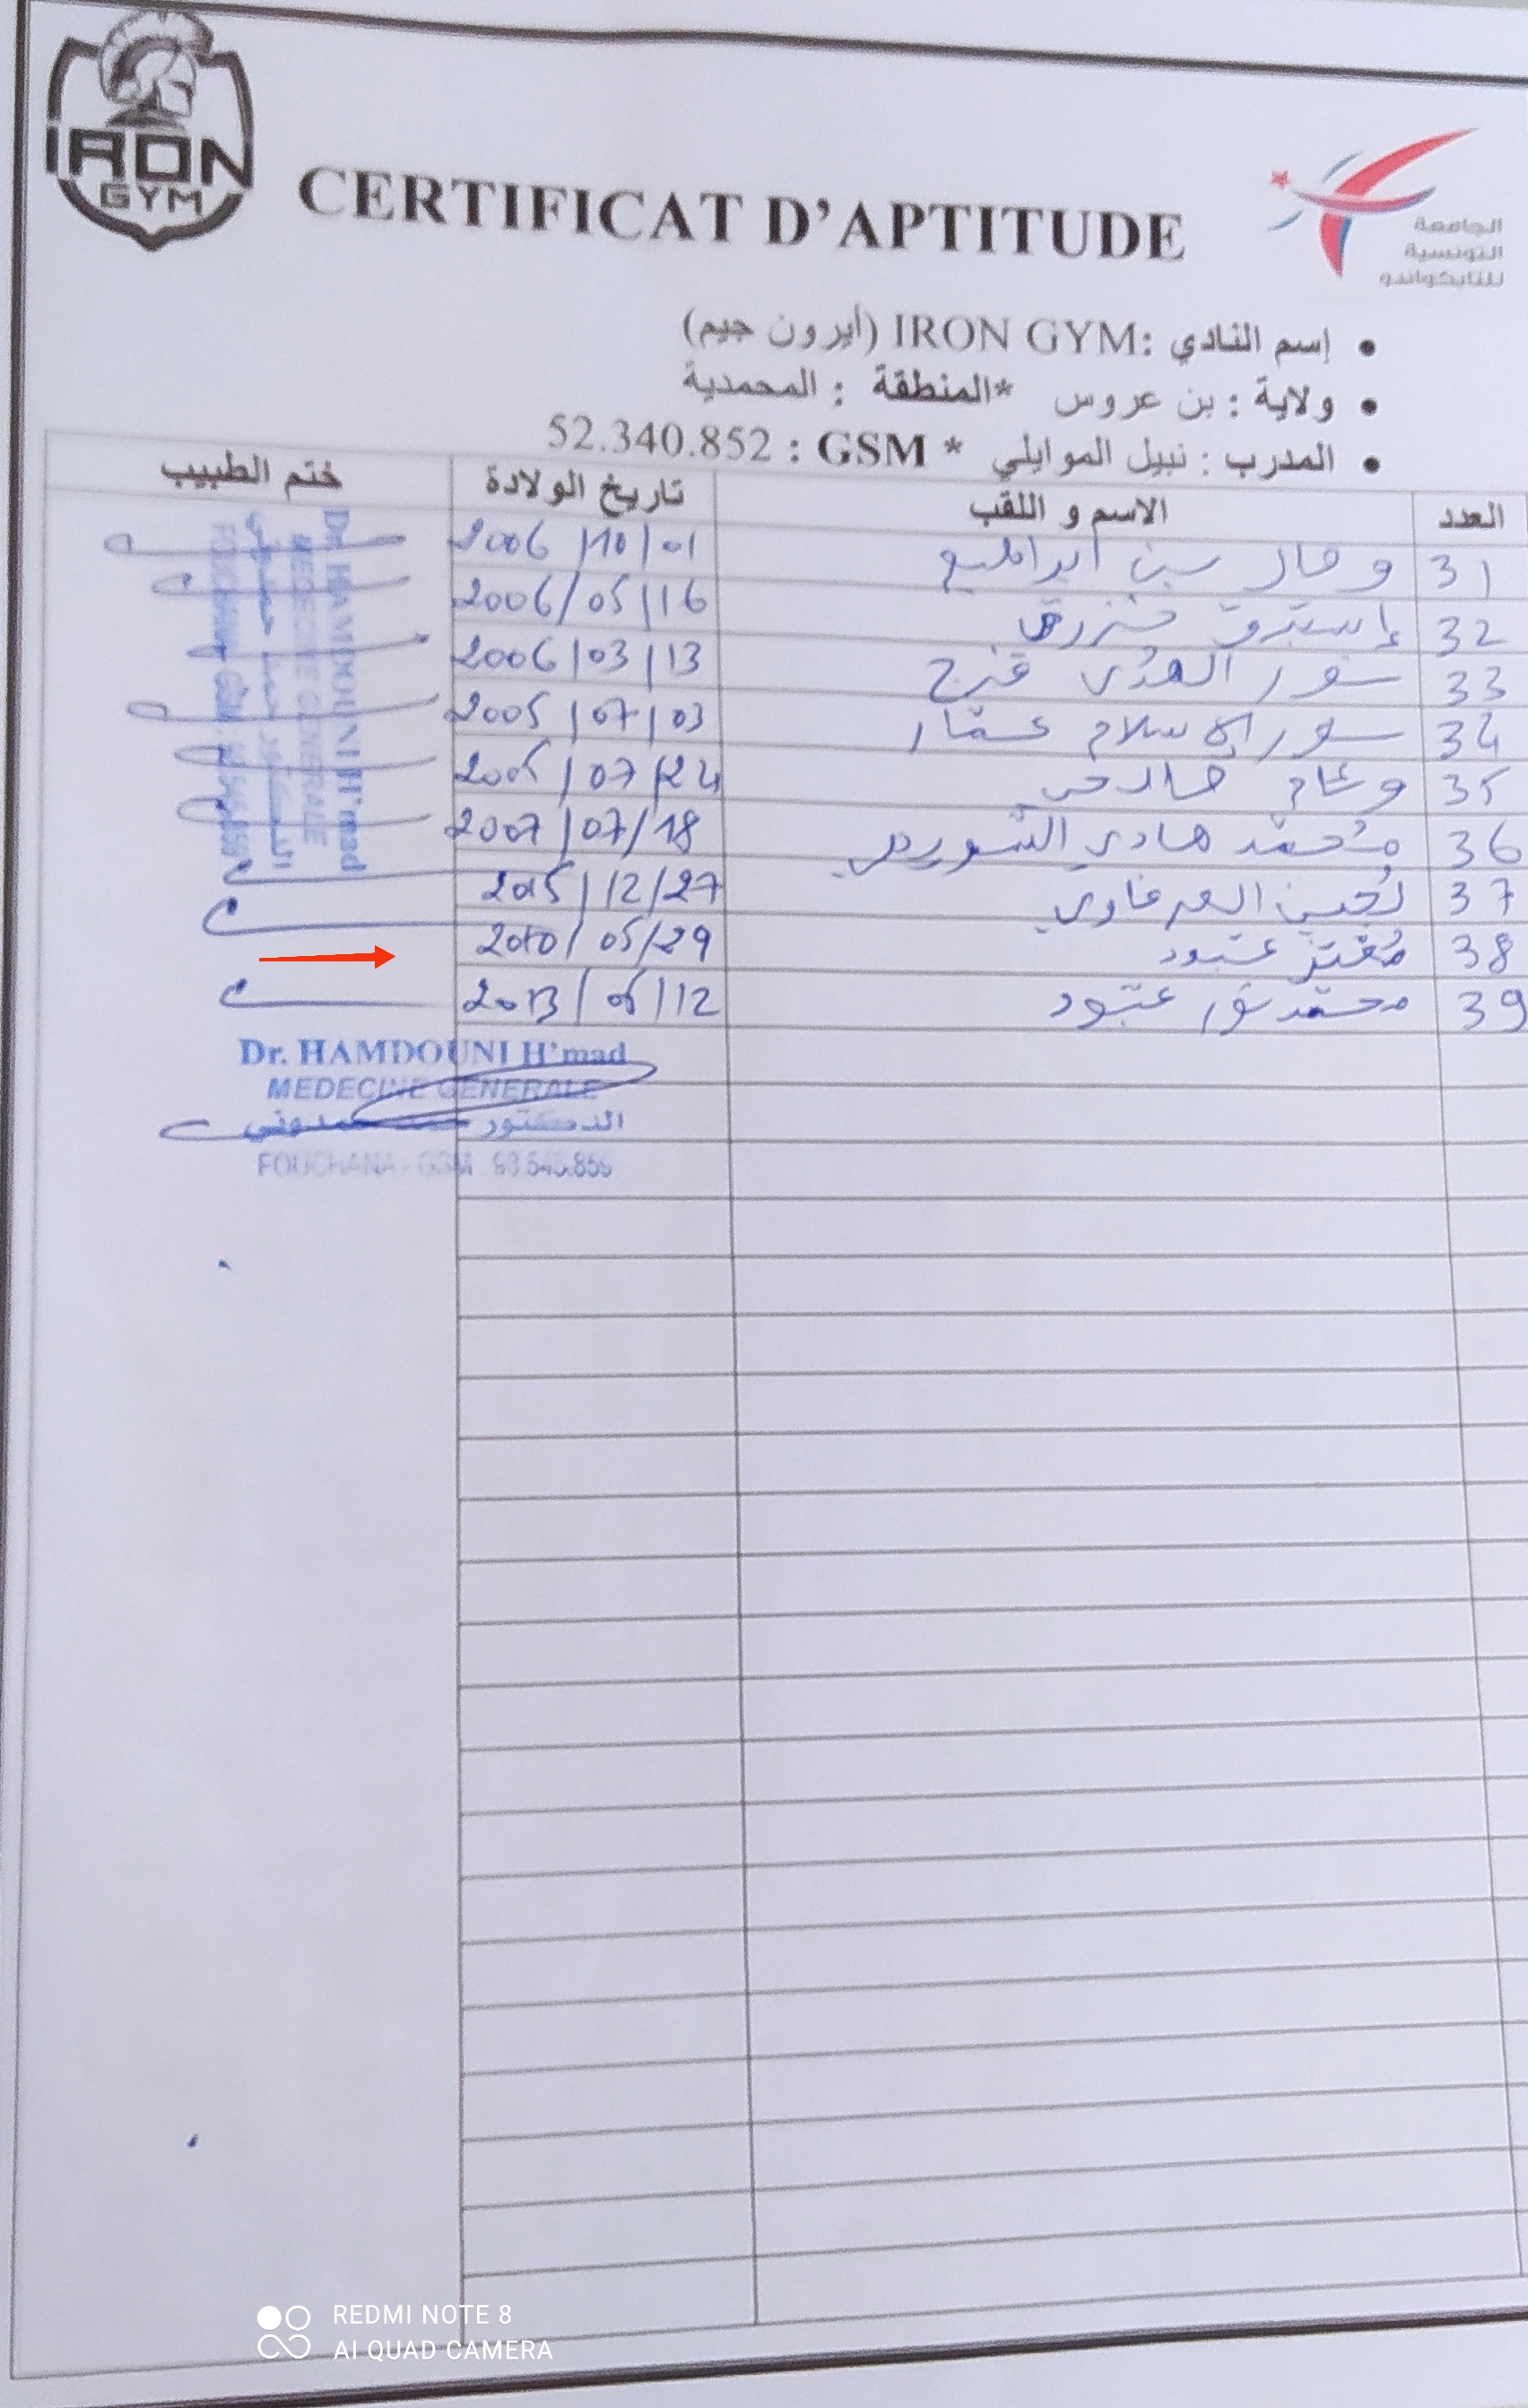 IRON
GYM
CERTIFICAT D'APTITUDE
الجامعة
التونسية
للتايكواندو
• إسم النادي :IRON GYM (أيرون جيم)
• ولاية : بن عروس *المنطقة : المحمدية
• المدرب : نبيل الموايلي * GSM : 52.340.852
العدد الاسم و اللقب تاريخ الولادة ختم الطبيب
31 بن ابراهيم 2006/10/01
32 إستبرق 2006/05/16
33 نور الهدى فرج 2006/03/13
34 نور الإسلام عمّار 2005/07/03
35 وئام 07/24
36 مُحمّد هادي 2007/07/18
37 لُجين العرفاوي 2015/12/27
38 مُعتز عبّود 2010/05/29
39 محمّد نور عبّود 2013/05/12
Dr. HAMDOUNI H'mad
MEDECINE GENERALE
Dr. HAMDOUNI H'mad
MEDECINE GENERALE
الدكتور حمدوني
FOUCHANA - GSM 98.545.855
REDMI NOTE 8
AI QUAD CAMERA